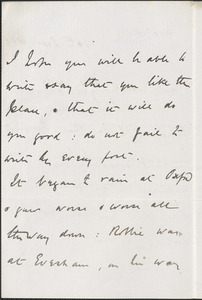 I hope you will be able to
write & say that you like the
place, & that it will do
you good: do not fail to
write by every post.
It began to rain at Oxford
& grew worse & worse all
the way down: Robbie was
at Evesham, on his way